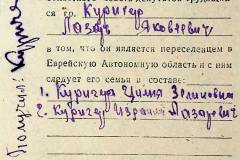 гр. Куригер
Лазарь Яковлевич
в том, что он является переселенцем в
Еврейскую Автономную область и с ним
следует его семья в составе:
1. Куригер Циля Зеликовна
2. Куригер Израиль Лазаревич
Получил: